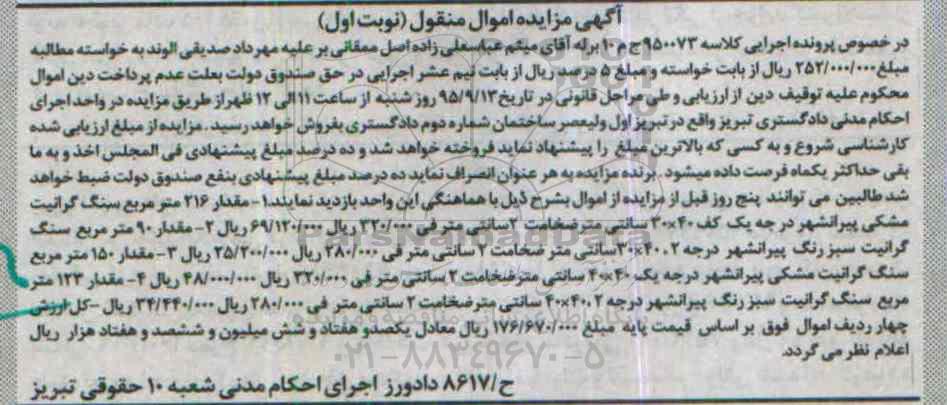 آگهی مزایده اموال منقول (نوبت اول)
در خصوص پرونده اجرایی کلاسه ۹۵۰۰۷۳ ج م ۱۰ برله آقای میثم عباسعلی زاده اصل ممقانی بر علیه مهرداد صدیقی الوند به خواسته مطالبه
مبلغ ۲۵۲/۰۰۰/۰۰۰ ریال از بابت خواسته و مبلغ ۵ درصد ریال از بابت نیم عشر اجرایی در حق صندوق دولت بعلت عدم پرداخت دین اموال
محکوم علیه توقیف دین از ارزیابی و طی مراحل قانونی در تاریخ ۹۵/۹/۱۳ روز شنبه از ساعت ۱۱ الی ۱۲ ظهر از طریق مزایده در واحد اجرای
احکام مدنی دادگستری تبریز واقع در تبریز اول ولیعصر ساختمان شماره دوم دادگستری بفروش خواهد رسید. مزایده از مبلغ ارزیابی شده
کارشناسی شروع و به کسی که بالاترین مبلغ را پیشنهاد نماید فروخته خواهد شد و ده درصد مبلغ پیشنهادی فی المجلس اخذ و به ما
بقی حداکثر یکماه فرصت داده میشود. برنده مزایده به هر عنوان انصراف نماید ده درصد مبلغ پیشنهادی بنفع صندوق دولت ضبط خواهد
شد طالبین می توانند پنج روز قبل از مزایده از اموال بشرح ذیل با هماهنگی این واحد بازدید نمایند. ۱- مقدار ۲۱۶ متر مربع سنگ گرانیت
مشکی پیرانشهر در جه یک کف ۴۰×۳۰ سانتی متر ضخامت ۲ سانتی متر فی ۳۲۰/۰۰۰ ریال ۶۹/۱۲۰/۰۰۰ ریال ۲- مقدار ۹۰ متر مربع سنگ
گرانیت سبز رنگ پیرانشهر درجه ۴۰.۲×۳۰ سانتی متر ضخامت ۲ سانتی متر فی ۲۸۰/۰۰۰ ریال ۲۵/۲۰۰/۰۰۰ ریال ۳- مقدار ۱۵۰ متر مربع
سنگ گرانیت مشکی پیرانشهر درجه یک ۴۰×۴۰ سانتی متر ضخامت ۲ سانتی متر فی ۳۲۰/۰۰۰ ریال ۴۸/۰۰۰/۰۰۰ ریال ۴- مقدار ۱۲۳ متر
مربع سنگ گرانیت سبز رنگ پیرانشهر درجه ۴۰.۲×۴۰ سانتی متر ضخامت ۲ سانتی متر فی ۲۸۰/۰۰۰ ریال ۳۴/۴۴۰/۰۰۰ ریال -کل ارزش
چهار ردیف اموال فوق بر اساس قیمت پایه مبلغ ۱۷۶/۶۷۰/۰۰۰ ریال معادل یکصدو هفتاد و شش میلیون و ششصد و هفتاد هزار ریال
اعلام نظر می گردد.
ح/۸۶۱۷ دادورز اجرای احکام مدنی شعبه ۱۰ حقوقی تبریز
ParsNamadData
۰۲۱-۸۸۳۴۹۶۷۰-۵